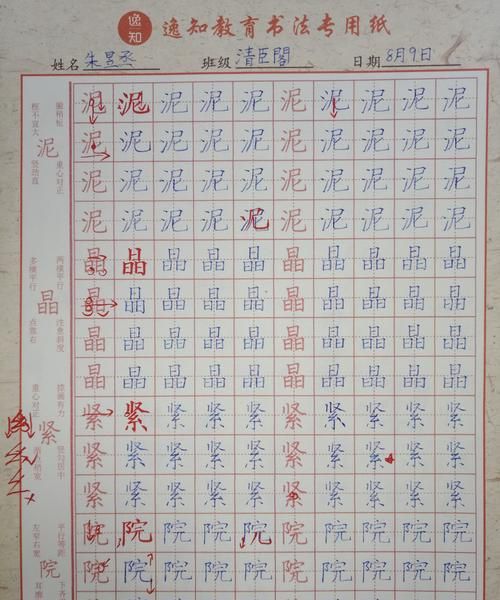 逸知
逸知教育书法专用纸
姓名 朱昱丞 班级 清臣閣 日期 8月9日
框不宜大 撇稍短
泥
竖笔直 重心对正
泥 泥 泥 泥 泥 泥 泥 泥 泥 泥
泥 泥 泥 泥 泥 泥 泥 泥 泥 泥
泥 泥 泥 泥 泥 泥 泥 泥 泥 泥
泥 泥 泥 泥 泥 泥 泥 泥 泥 泥
多横平行 两横平行
晶
点靠右 注意斜度
晶 晶 晶 晶 晶 晶 晶 晶 晶 晶
晶 晶 晶 晶 晶 晶 晶 晶 晶 晶
晶 晶 晶 晶 晶 晶 晶 晶 晶 晶
晶 晶 晶 晶 晶 晶 晶 晶 晶 晶
重心对正 捺画有力
紧
竖勾居中
紧 紧 紧 紧 紧 紧 紧 紧 紧 紧
紧 紧 紧 紧 紧 紧 紧 紧 紧 紧
紧 紧 紧 紧 紧 紧 紧 紧 紧 紧
左窄右宽 平行等距
院
下齐
院 院 院 院 院 院 院 院 院 院
院 院 院 院 院 院 院 院 院 院